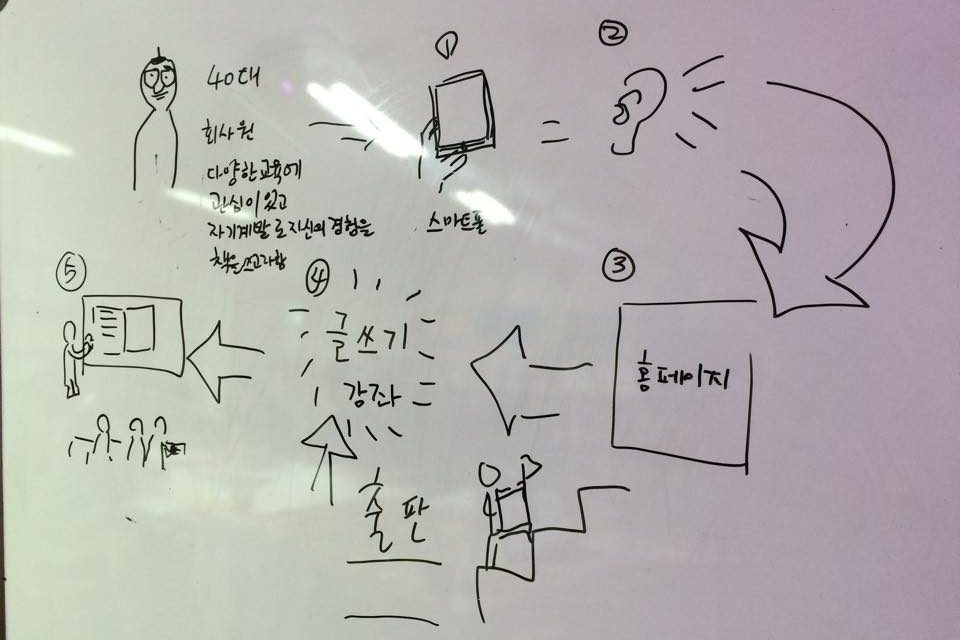 40대
회사원
다양한 교육에
관심이 있고
자기계발로 자신의 경험을
책을 쓰고자함
①
스마트폰
②
③
홈페이지
④
글쓰기
강좌
출판
⑤